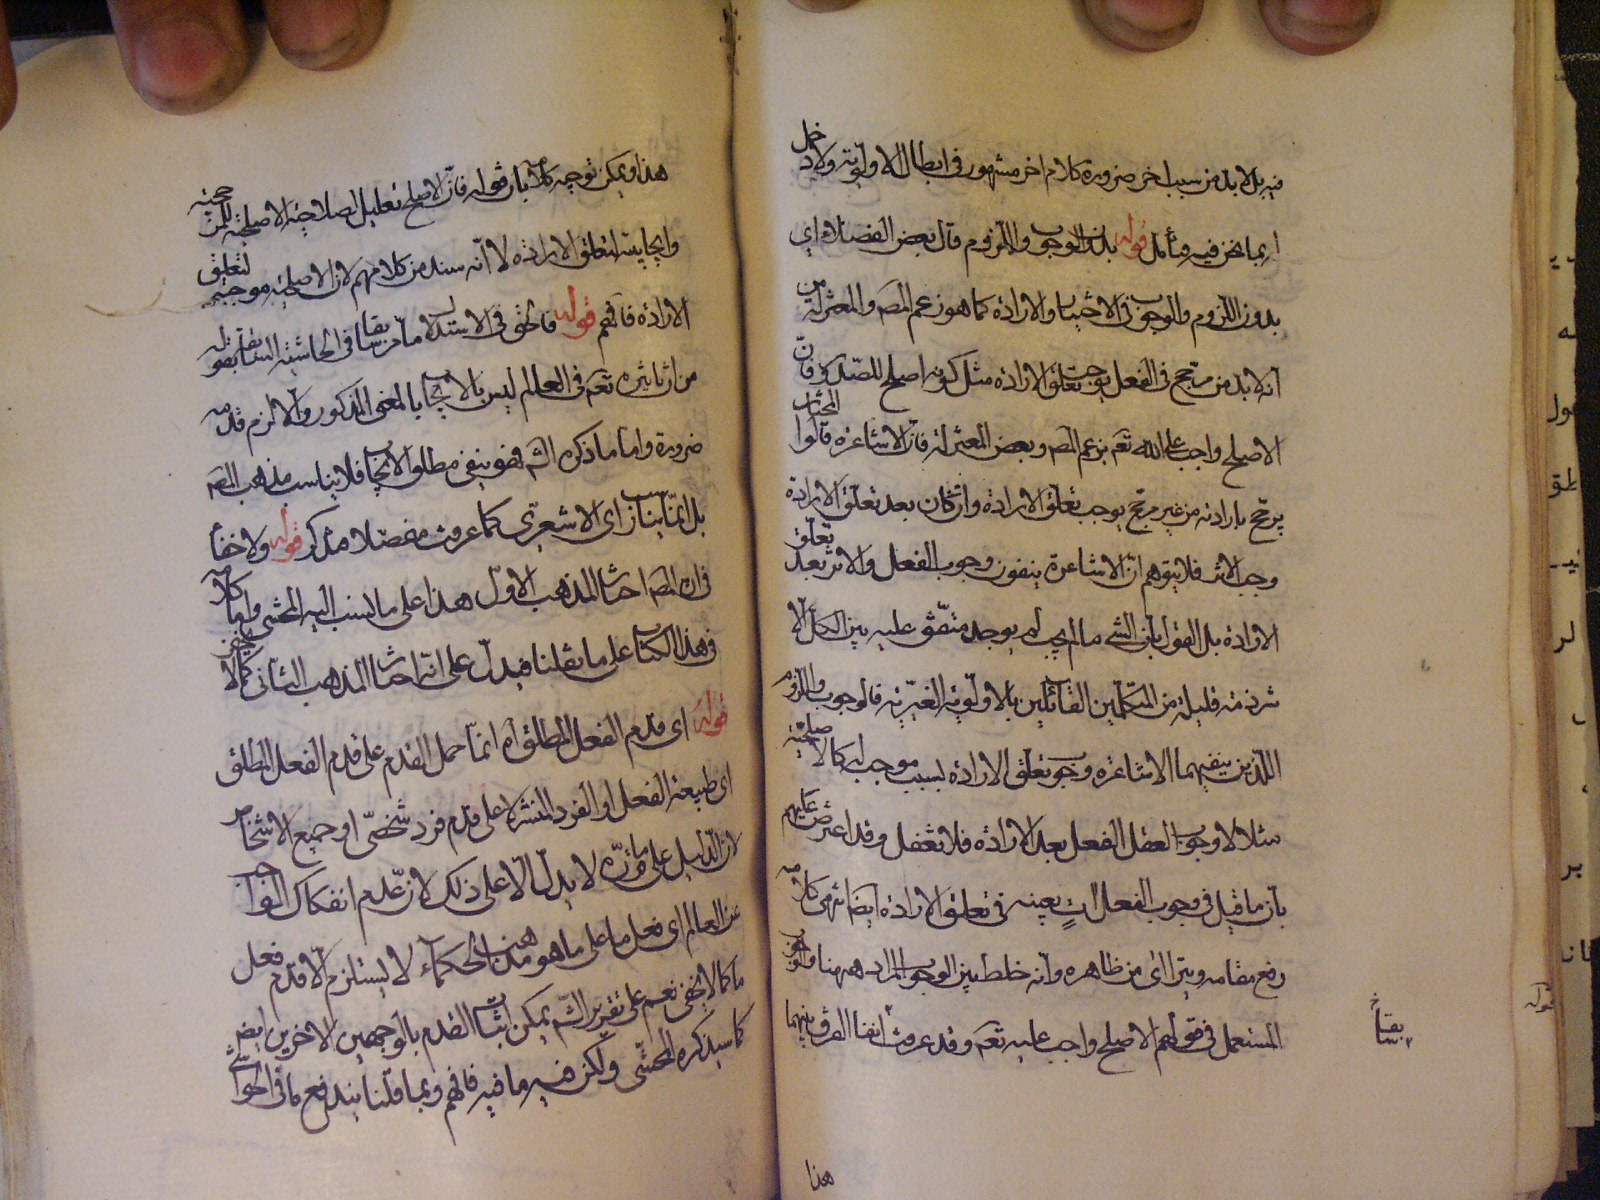 فيه بل لا بد من سبب اخر ضرورة كلام اخر مشهور فى ابطال الاولوية ولا دخل
له بما نحن فيه فتأمل قوله بدون الوجوب واللزوم قال بعض الفضلاء اى
بدون اللزوم والوجوب فى الاختيار والارادة كما هو زعم المص والمعتزلة من
انه لا بد من مرجح فى الفعل يوجب تعلق الارادة مثل كونه اصلح للصدور فان
الاصلح واجب على الله تعم بزعم المص وبعض المعتزلة فان الاشاعرة قالوا المختار
يرجح بارادته من غير مرجح يوجب تعلق الارادة وان كان بعد تعلق الارادة
وجب الاثر فلا يتوهم ان الاشاعرة ينفون وجوب الفعل والاثر بعد تعلق
الارادة بل القول بان الشئ ما لم يجب لم يوجد متفق عليه بين الكل الا
شرذمة قليلة من المتكلمين القائلين بالاولوية الغيرية فالوجوب واللزوم
اللذين ينفيهما الاشاعرة وجوب تعلق الارادة بسبب موجب له كالاصلحية
مثلا لا وجوب الفعل بعد الارادة فلا تغفل وقد اعترض عليهم
بان ما قيل فى وجوب الفعل آت بعينه فى تعلق الارادة ايضا انتهى كلامه
رفع مقامه ويترااى من ظاهره انه خلط بين الوجوب المراد ههنا والوجوب
المستعمل فى قولهم الاصلح واجب عليه تعم وقد عرفت آنفا الفرق بينهما
هذا
هذا ويمكن توجيه كلامه بان قوله فان الاصلح تعليل لصلاحية الاصلحية للمرجحية
وايجابية لتعلق الارادة لا انه سند من كلامهم لان الاصلحية موجبة لتعلق
الارادة فافهم قوله فالحق فى الاستدلال ما مر سابقا فى الحاشية السابقة بقوله
من ان تاثيره تعم فى العالم ليس بالايجاب بالمعنى المذكور والا لزم قدمه
ضرورة واما ما ذكره الش فهو ينفى مطلق الايجاب فلا يناسب مذهب المص
بل انما يناسب راى الاشعرى كما عرفت مفصلا متذكر قوله ولا خفأ
فى ان المص اختار المذهب الاول هذا على ما نسب اليه المحشى واما كلامه
فى هذا الكتاب على ما نقلنا فيدل على انه اختار المذهب الثانى كما لا يخفى
قوله اى قدم الفعل المطلق اه انما حمل القدم على قدم الفعل المطلق
اى طبيعة الفعل او الفرد المنتشر لا على قدم فرد شخصى او جميع الاشخاص
لان الدليل على ما قرره لا يدل الا على ذلك لان عدم انفكاك الواجب
عن العالم اى فعل ما على ما هو مذهب الحكماء لا يستلزم الا قدم فعل
ما كما لا يخفى نعم على تقرير الش يمكن اثبات القدم بالوجهين الاخرين ايضا
كما سيذكره المحشى ولكن فيه ما فيه فافهم وبما قلنا يندفع ما فى الحواشى